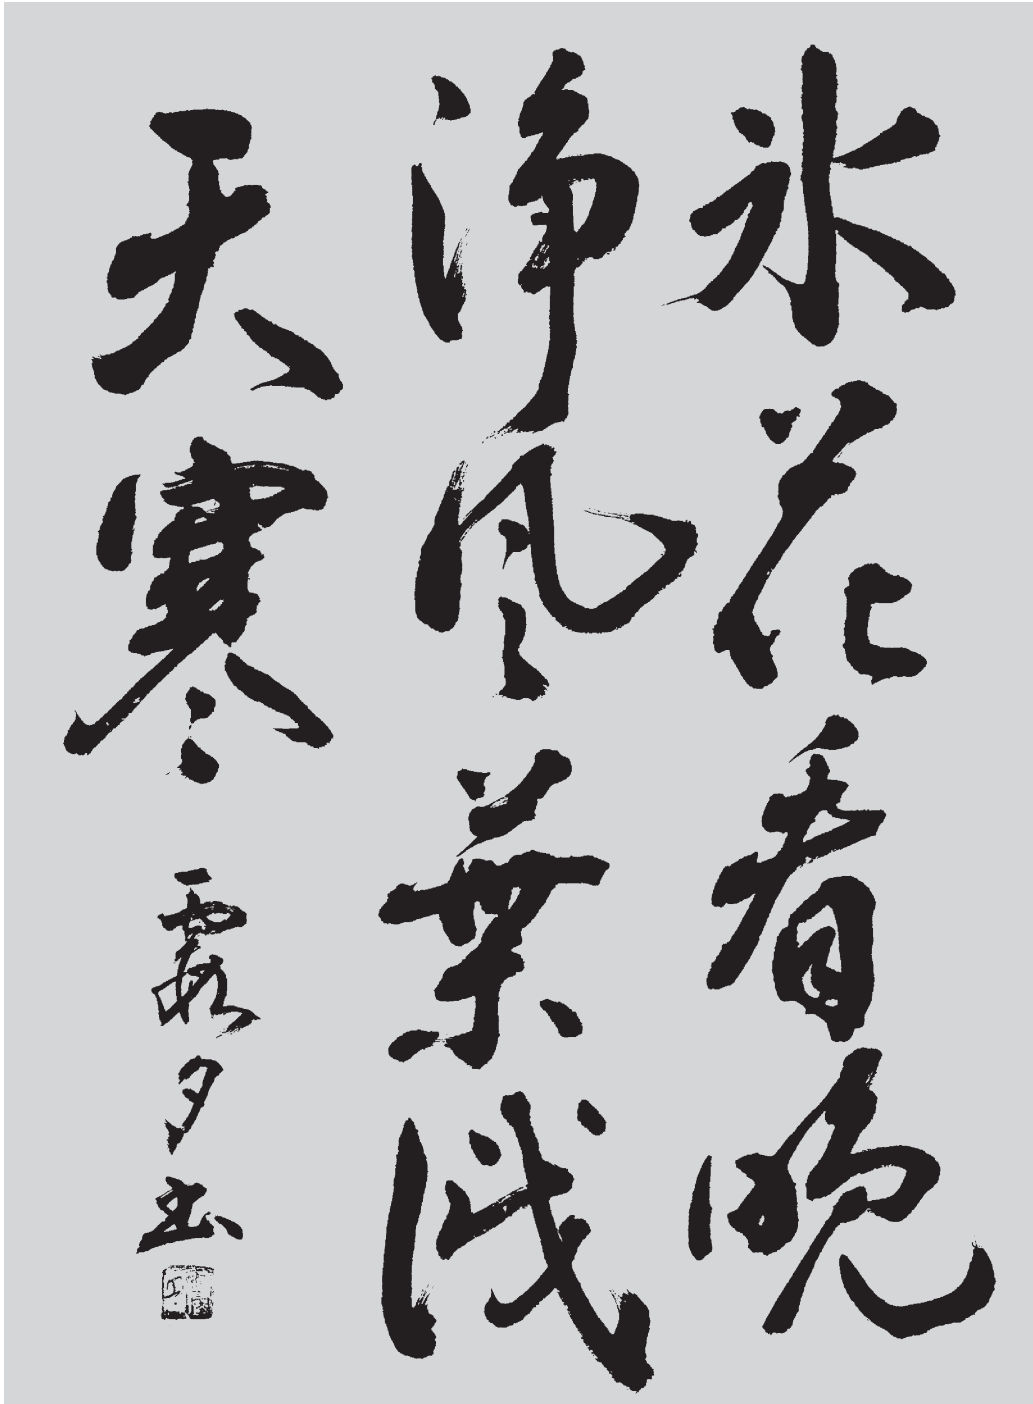 氷花看晩
浄風葉識
天寒 霞夕書